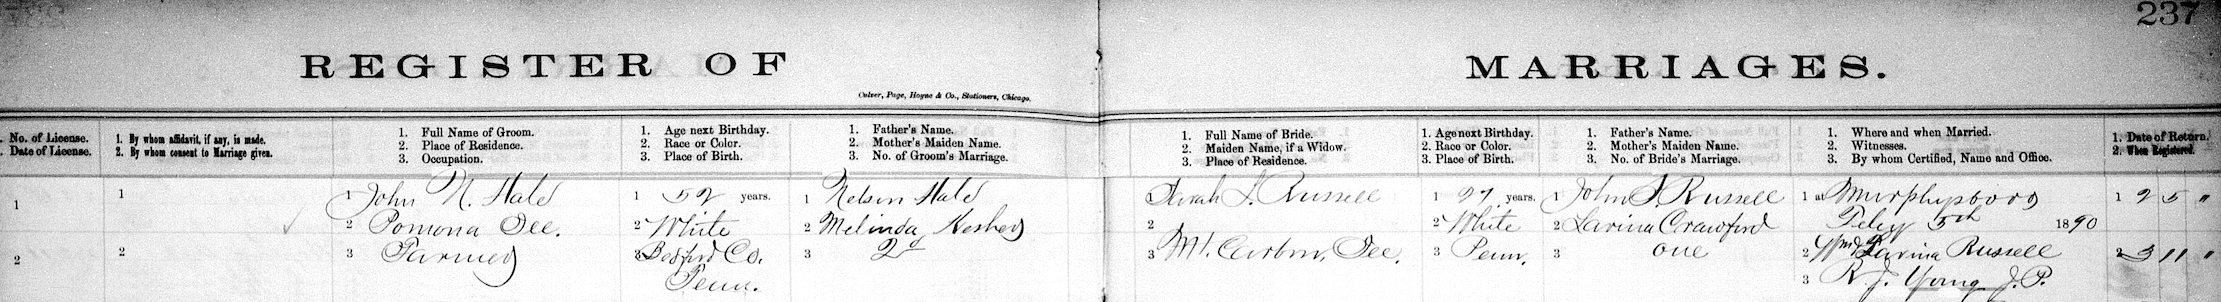 237
REGISTER OF MARRIAGES.
Culver, Page, Hoyne & Co., Stationers, Chicago.
No. of License.
Date of License.
1. By whom affidavit, if any, is made.
2. By whom consent to Marriage given.
1. Full Name of Groom.
2. Place of Residence.
3. Occupation.
1. Age next Birthday.
2. Race or Color.
3. Place of Birth.
1. Father's Name.
2. Mother's Maiden Name.
3. No. of Groom's Marriage.
1. Full Name of Bride.
2. Maiden Name, if a Widow.
3. Place of Residence.
1. Age next Birthday.
2. Race or Color.
3. Place of Birth.
1. Father's Name.
2. Mother's Maiden Name.
3. No. of Bride's Marriage.
1. Where and when Married.
2. Witnesses.
3. By whom Certified, Name and Office.
1. Date of Return.
2. When Registered.
1
2
1
2
1 John N. Hale
2 Pomona Ill.
3 Farmer
1 52 years.
2 White
3 Co.
Penn.
1 Nelson Hale
2 Melinda
3 2
Sarah Russell
2
3 Mt. Carbon, Ill.
1 27 years.
2 White
3 Penn.
1 John Russell
2 Lavina Crawford
3 one
1 at Murphysboro
Feby 5th 1890
2 Lavina Russell
3 R. J. Young J. P.
1 2 5 "
2 3 11 "